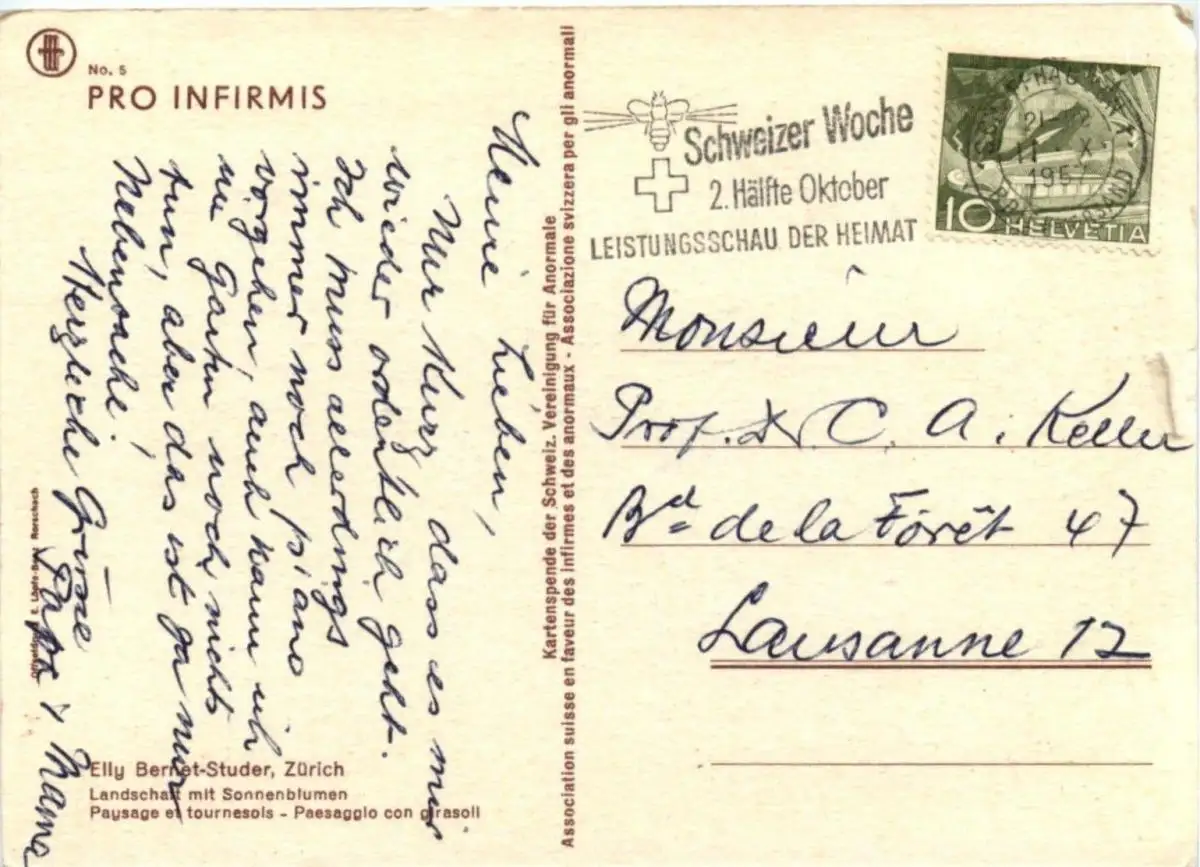 No. 5
PRO INFIRMIS
Meine Lieben,
Nur kurz, dass es mir
wieder ordentlich geht.
Ich muss allerdings
immer noch piano
vorgehen, auch kann ich
im Garten noch nichts
tun, aber das ist ja nur
Nebensache!
Herzliche Grüsse
Papa & Mama
Elly Bernet-Studer, Zürich
Landschaft mit Sonnenblumen
Paysage et tournesols - Paesaggio con girasoli
E. Löpfe-Benz Rorschach
Kartenspende der Schweiz. Vereinigung für Anormale
Association suisse en faveur des infirmes et des anormaux - Associazione svizzera per gli anormali
Schweizer Woche
2. Hälfte Oktober
LEISTUNGSSCHAU DER HEIMAT
11 X
195
10 HELVETIA
Monsieur
Prof. Dr C. A. Keller
Bd de la Forêt 47
Lausanne 12